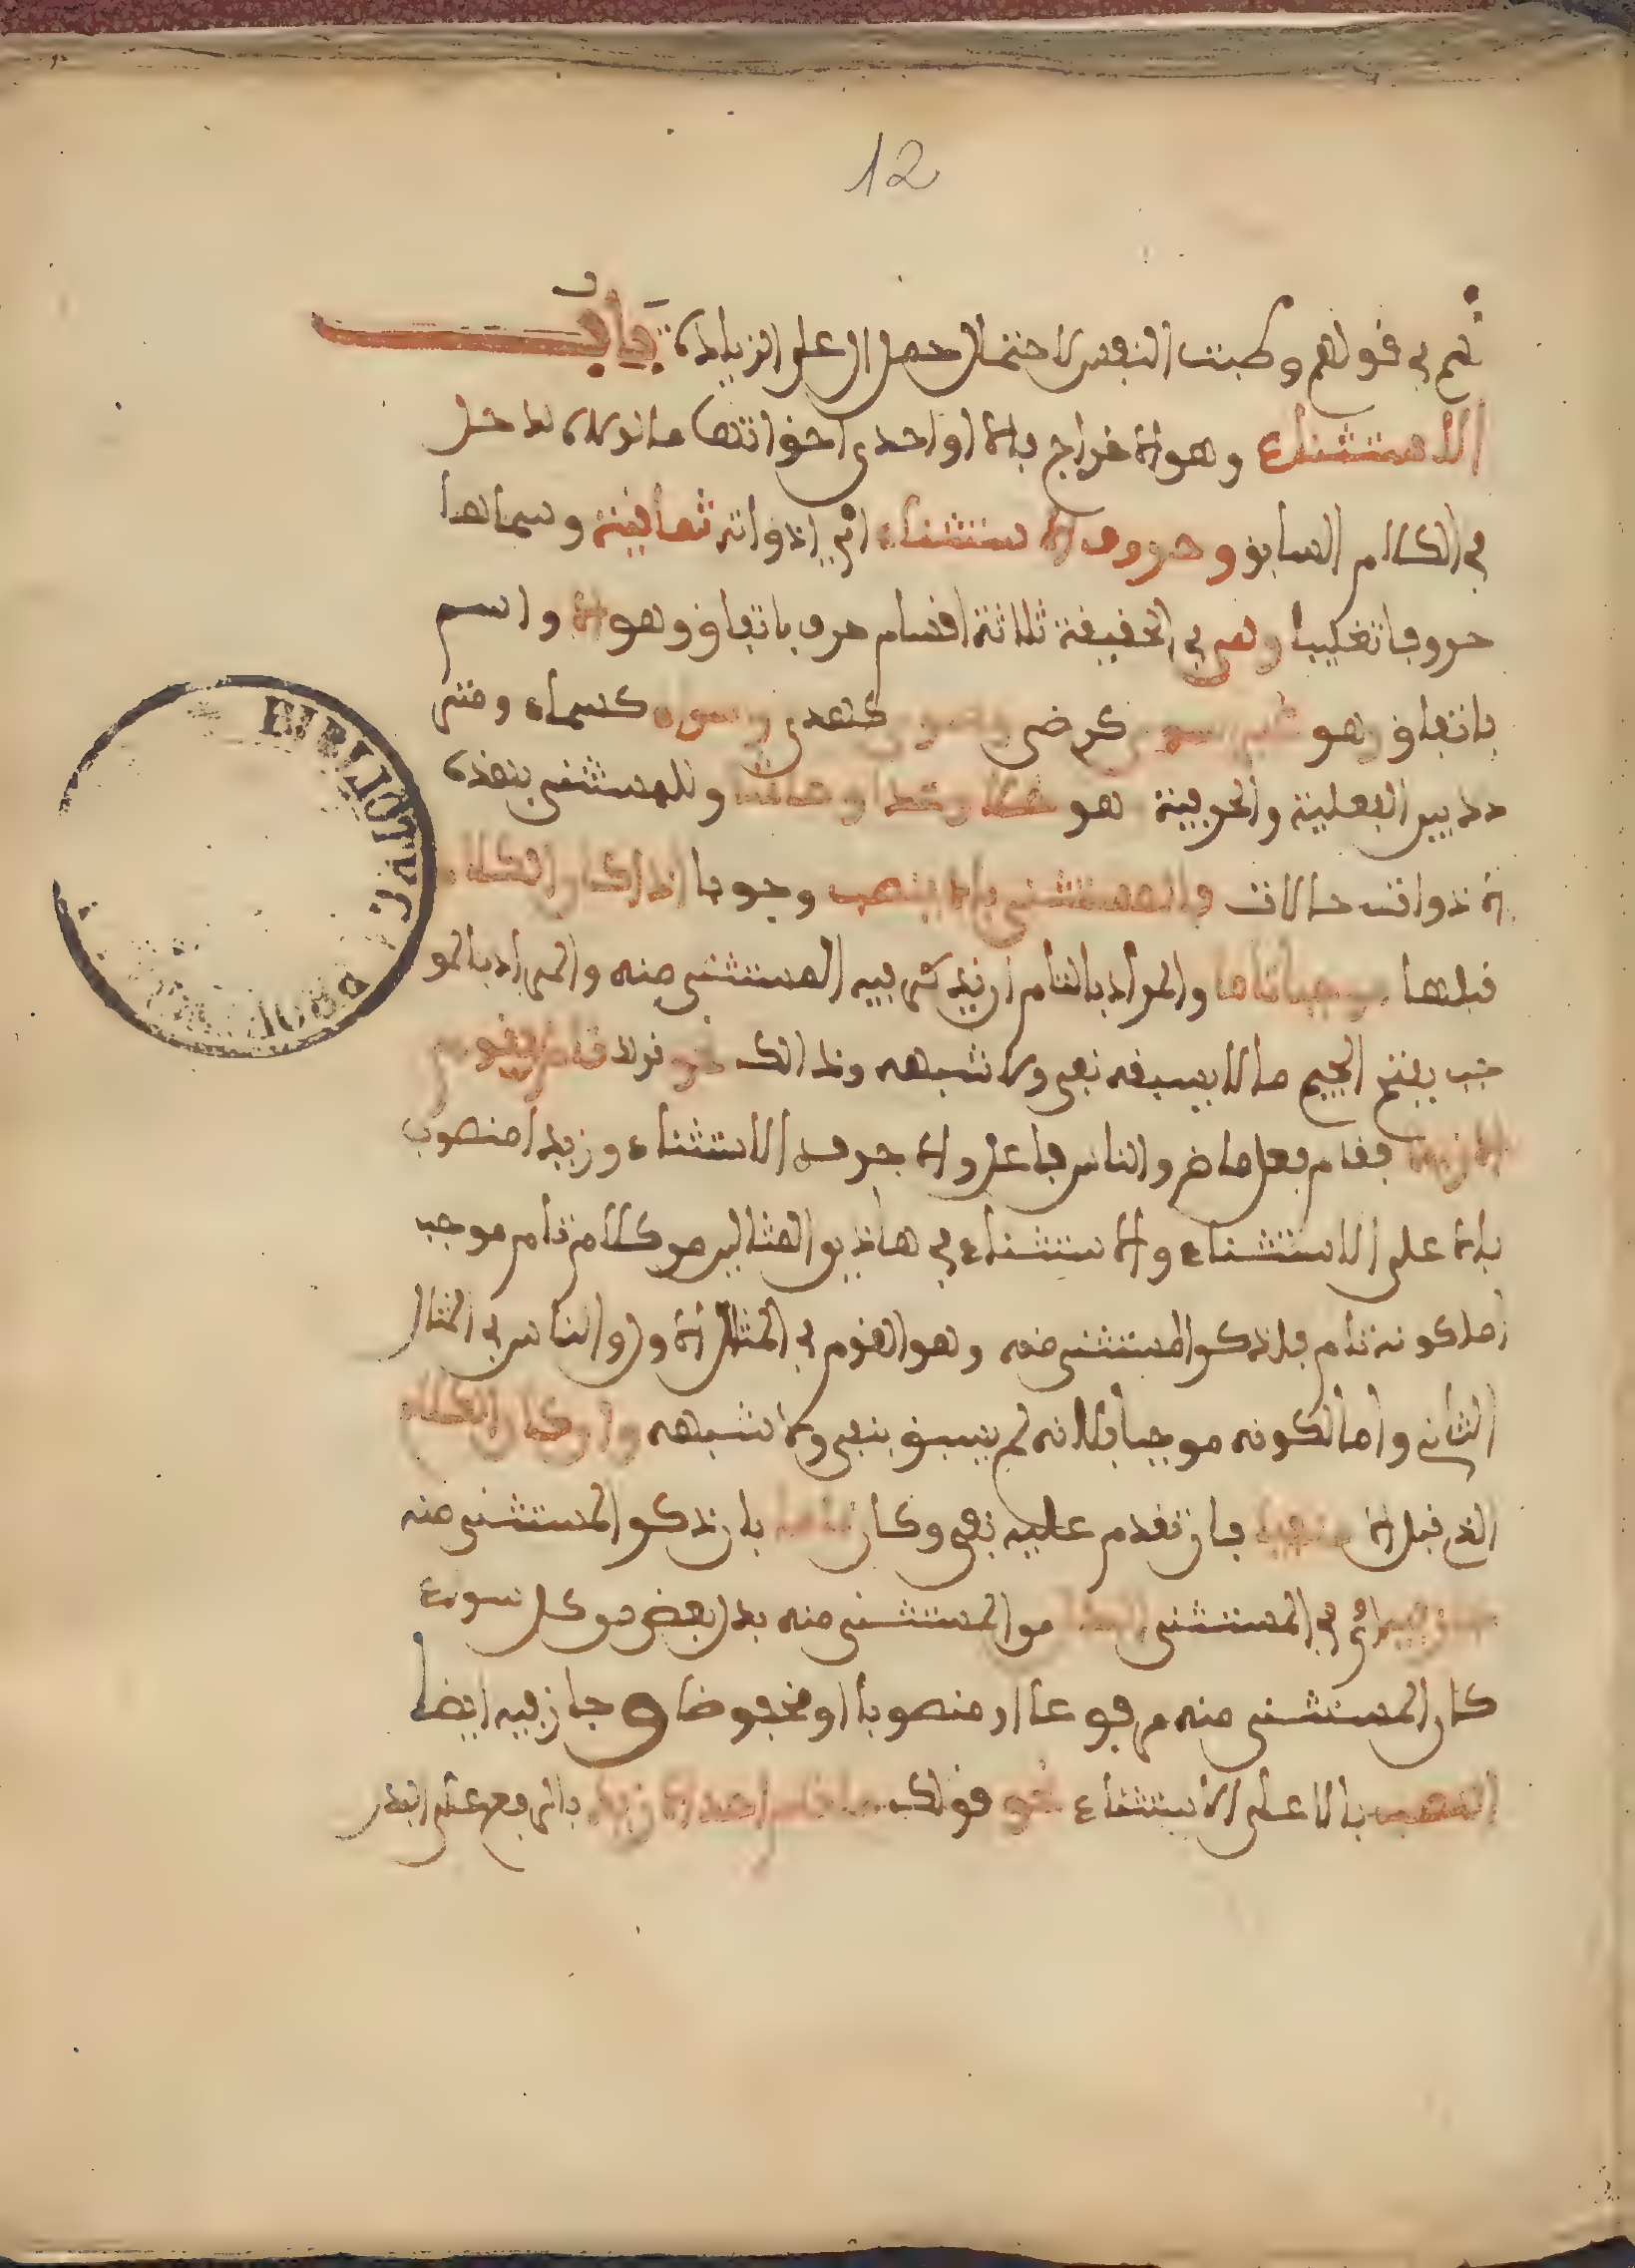 12
ثم في قولهم وطبت النفس لاحتمال حمل ال على الزيادة باب
الاستثناء وهو الاخراج بالا او احدى اخواتها ما لولاه لدخل
في الكلام السابق وحروف الاستثناء اي ادواته ثمانية وسماها
حروفا تغليبا وهي في الحقيقة ثلاثة اقسام حرف باتفاق وهو الا واسم
باتفاق وهو غير وسوى كرضى وسوى كهدى وسواء كسماء ومتر
دد بين الفعلية والحرفية هو خلا وعدا وحاشا وللمستثنى بهذه
الادوات حالات فالمستثنى بالا ينصب وجوبا اذا كان الكلام
قبلها موجبا تاما والمراد بالتام ان يذكر فيه المستثنى منه والمراد بالمو
جب بفتح الجيم ما لا يسبقه نفي ولا شبهه وذالك نحو قولك قام القوم
الا زيدا فقام فعل ماض والناس فاعل والا حرف الاستثناء وزيدا منصوب
بالا على الاستثناء والاستثناء في هاذين المثالين من كلام تام موجب
اما كونه تام فلذكر المستثنى منه وهو القوم في المثال الاول والناس في المثال
الثاني واما لكونه موجبا فلانه لم يسبق بنفي ولا شبهه وان كان الكلام
الذي قبل الا منفيا بان تقدم عليه نفي وكان تاما بان ذكر المستثنى منه
جاز فيه اي في المستثنى البدل من المستثنى منه بدل بعض من كل سواء
كان المستثنى منه مرفوعا او منصوبا او مخفوضا وجاز فيه ايضا
النصب بالا على الاستثناء نحو قولك ما قام احد الا زيد بالرفع على البدل
BIBLIOT